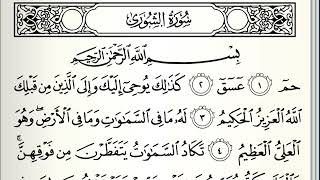 سُورَةُ الشُّورَىٰ
بِسْمِ اللَّهِ الرَّحْمَٰنِ الرَّحِيمِ
حمٓ ١ عٓسٓقٓ ٢ كَذَٰلِكَ يُوحِيٓ إِلَيْكَ وَإِلَى الَّذِينَ مِن قَبْلِكَ
اللَّهُ الْعَزِيزُ الْحَكِيمُ ٣ لَهُۥ مَا فِي السَّمَٰوَٰتِ وَمَا فِي الْأَرْضِ ۖ وَهُوَ
الْعَلِيُّ الْعَظِيمُ ٤ تَكَادُ السَّمَٰوَٰتُ يَتَفَطَّرْنَ مِن فَوْقِهِنَّ ۚ